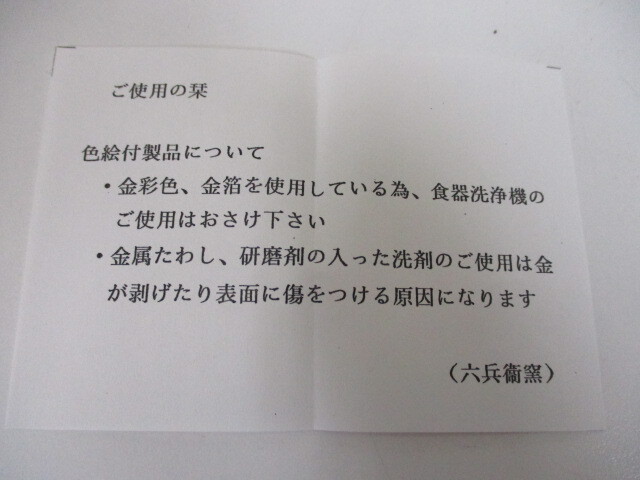 ご使用の栞
色絵付製品について
・金彩色、金箔を使用している為、食器洗浄機の
ご使用はおさけ下さい
・金属たわし、研磨剤の入った洗剤のご使用は金
が剥げたり表面に傷をつける原因になります
(六兵衞窯)